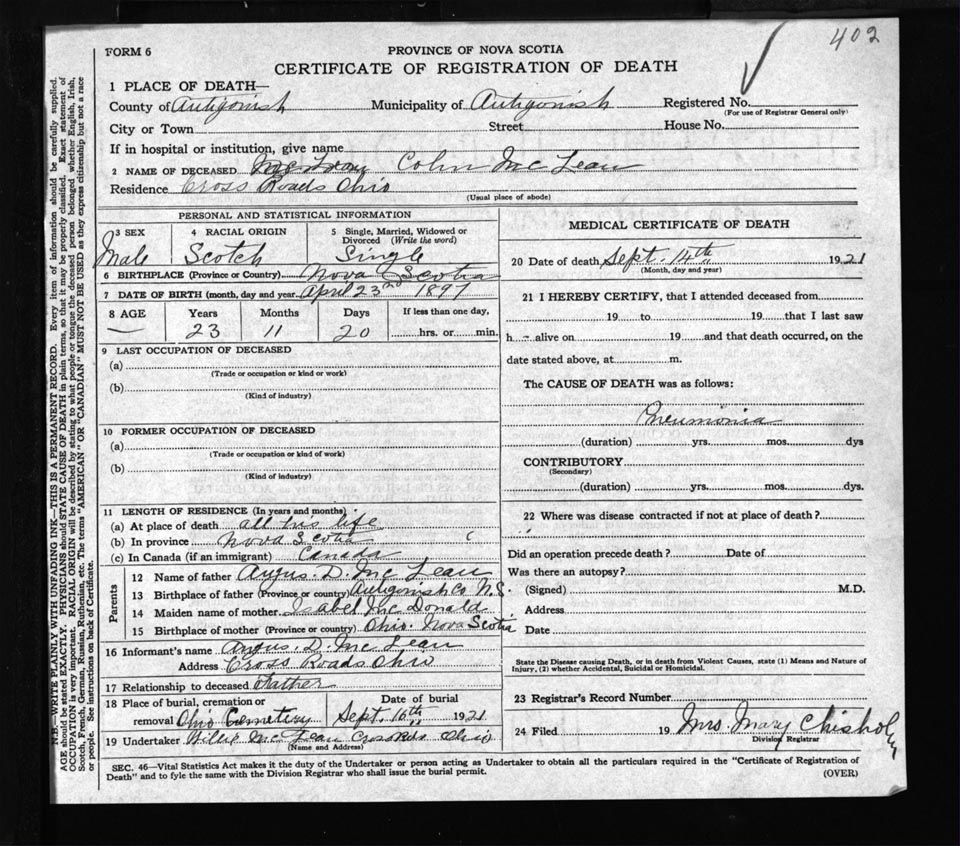 402
FORM 6
PROVINCE OF NOVA SCOTIA
CERTIFICATE OF REGISTRATION OF DEATH
1 PLACE OF DEATH—
County of Antigonish Municipality of Antigonish Registered No.
(For use of Registrar General only)
City or Town Street House No.
If in hospital or institution, give name
2 NAME OF DECEASED McLean Colin McLean
Residence Cross Roads Ohio
(Usual place of abode)
PERSONAL AND STATISTICAL INFORMATION
3 SEX 4 RACIAL ORIGIN 5 Single, Married, Widowed or Divorced (Write the word)
Male Scotch Single
6 BIRTHPLACE (Province or Country) Nova Scotia
7 DATE OF BIRTH (month, day and year April 23rd 1897
8 AGE Years Months Days If less than one day,
— 23 11 20 hrs. or min.
9 LAST OCCUPATION OF DECEASED
(a)
(Trade or occupation or kind or work)
(b)
(Kind of industry)
10 FORMER OCCUPATION OF DECEASED
(a)
(Trade or occupation or kind of work)
(b)
(Kind of industry)
11 LENGTH OF RESIDENCE (In years and months)
(a) At place of death all his life
(b) In province Nova Scotia
(c) In Canada (if an immigrant) Canada
Parents
12 Name of father Angus. D. McLean
13 Birthplace of father (Province or country) Antigonish Co N.S.
14 Maiden name of mother Isabel McDonald
15 Birthplace of mother (Province or country) Ohio Nova Scotia
16 Informant's name Angus. D. McLean
Address Cross Roads Ohio
17 Relationship to deceased Father
18 Place of burial, cremation or Date of burial
removal Ohio Cemetery Sept. 16th 1921
19 Undertaker Willie McLean Ohio
(Name and Address)
MEDICAL CERTIFICATE OF DEATH
20 Date of death Sept. 14th 1921
(Month, day and year)
21 I HEREBY CERTIFY, that I attended deceased from
19 to 19 that I last saw
h alive on 19 and that death occurred, on the
date stated above, at m.
The CAUSE OF DEATH was as follows:
Pneumonia
(duration) yrs. mos. dys
CONTRIBUTORY
(Secondary)
(duration) yrs. mos. dys.
22 Where was disease contracted if not at place of death?
Did an operation precede death? Date of
Was there an autopsy?
(Signed) M.D.
Address
Date
State the Disease causing Death, or in death from Violent Causes, state (1) Means and Nature of
Injury, (2) whether Accidental, Suicidal or Homicidal.
23 Registrar's Record Number
24 Filed 19 Mrs. Mary Chisholm
Division Registrar
SEC. 46—Vital Statistics Act makes it the duty of the Undertaker or person acting as Undertaker to obtain all the particulars required in the "Certificate of Registration of
Death" and to fyle the same with the Division Registrar who shall issue the burial permit.
(OVER)
N.B.—WRITE PLAINLY WITH UNFADING INK—THIS IS A PERMANENT RECORD. Every item of information should be carefully supplied.
AGE should be stated EXACTLY. PHYSICIANS should STATE CAUSE OF DEATH in plain terms, so that it may be properly classified. Exact statement of
OCCUPATION is very important. RACIAL ORIGIN will be described by stating to what people or tongue the deceased person belonged whether English, Irish,
Scotch, French, German, Russian, Ruthenian, etc. The terms "AMERICAN" OR "CANADIAN" MUST NOT BE USED as they express citizenship but not a race
or people. See instructions on back of Certificate.